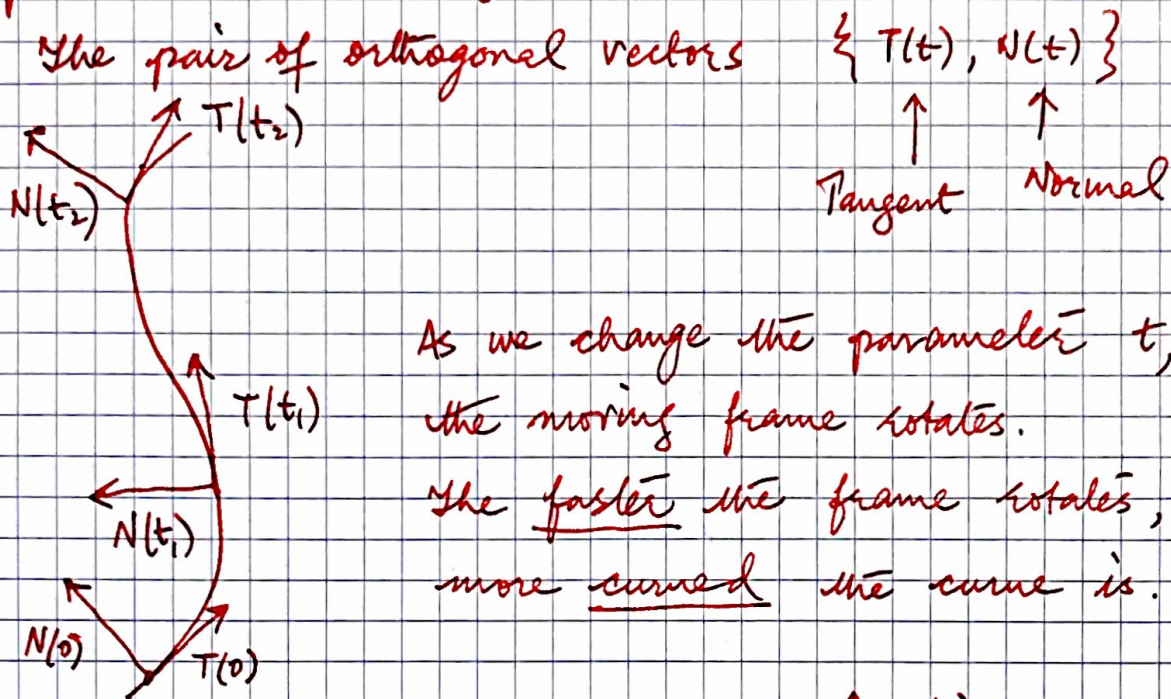 The pair of orthogonal vectors { T(t), N(t) }
↑ ↑
Tangent Normal
T(t₂)
N(t₂)
As we change the parameter t,
T(t₁)
the moving frame rotates.
The faster the frame rotates,
N(t₁)
more curved the curve is.
N(0)
T(0)